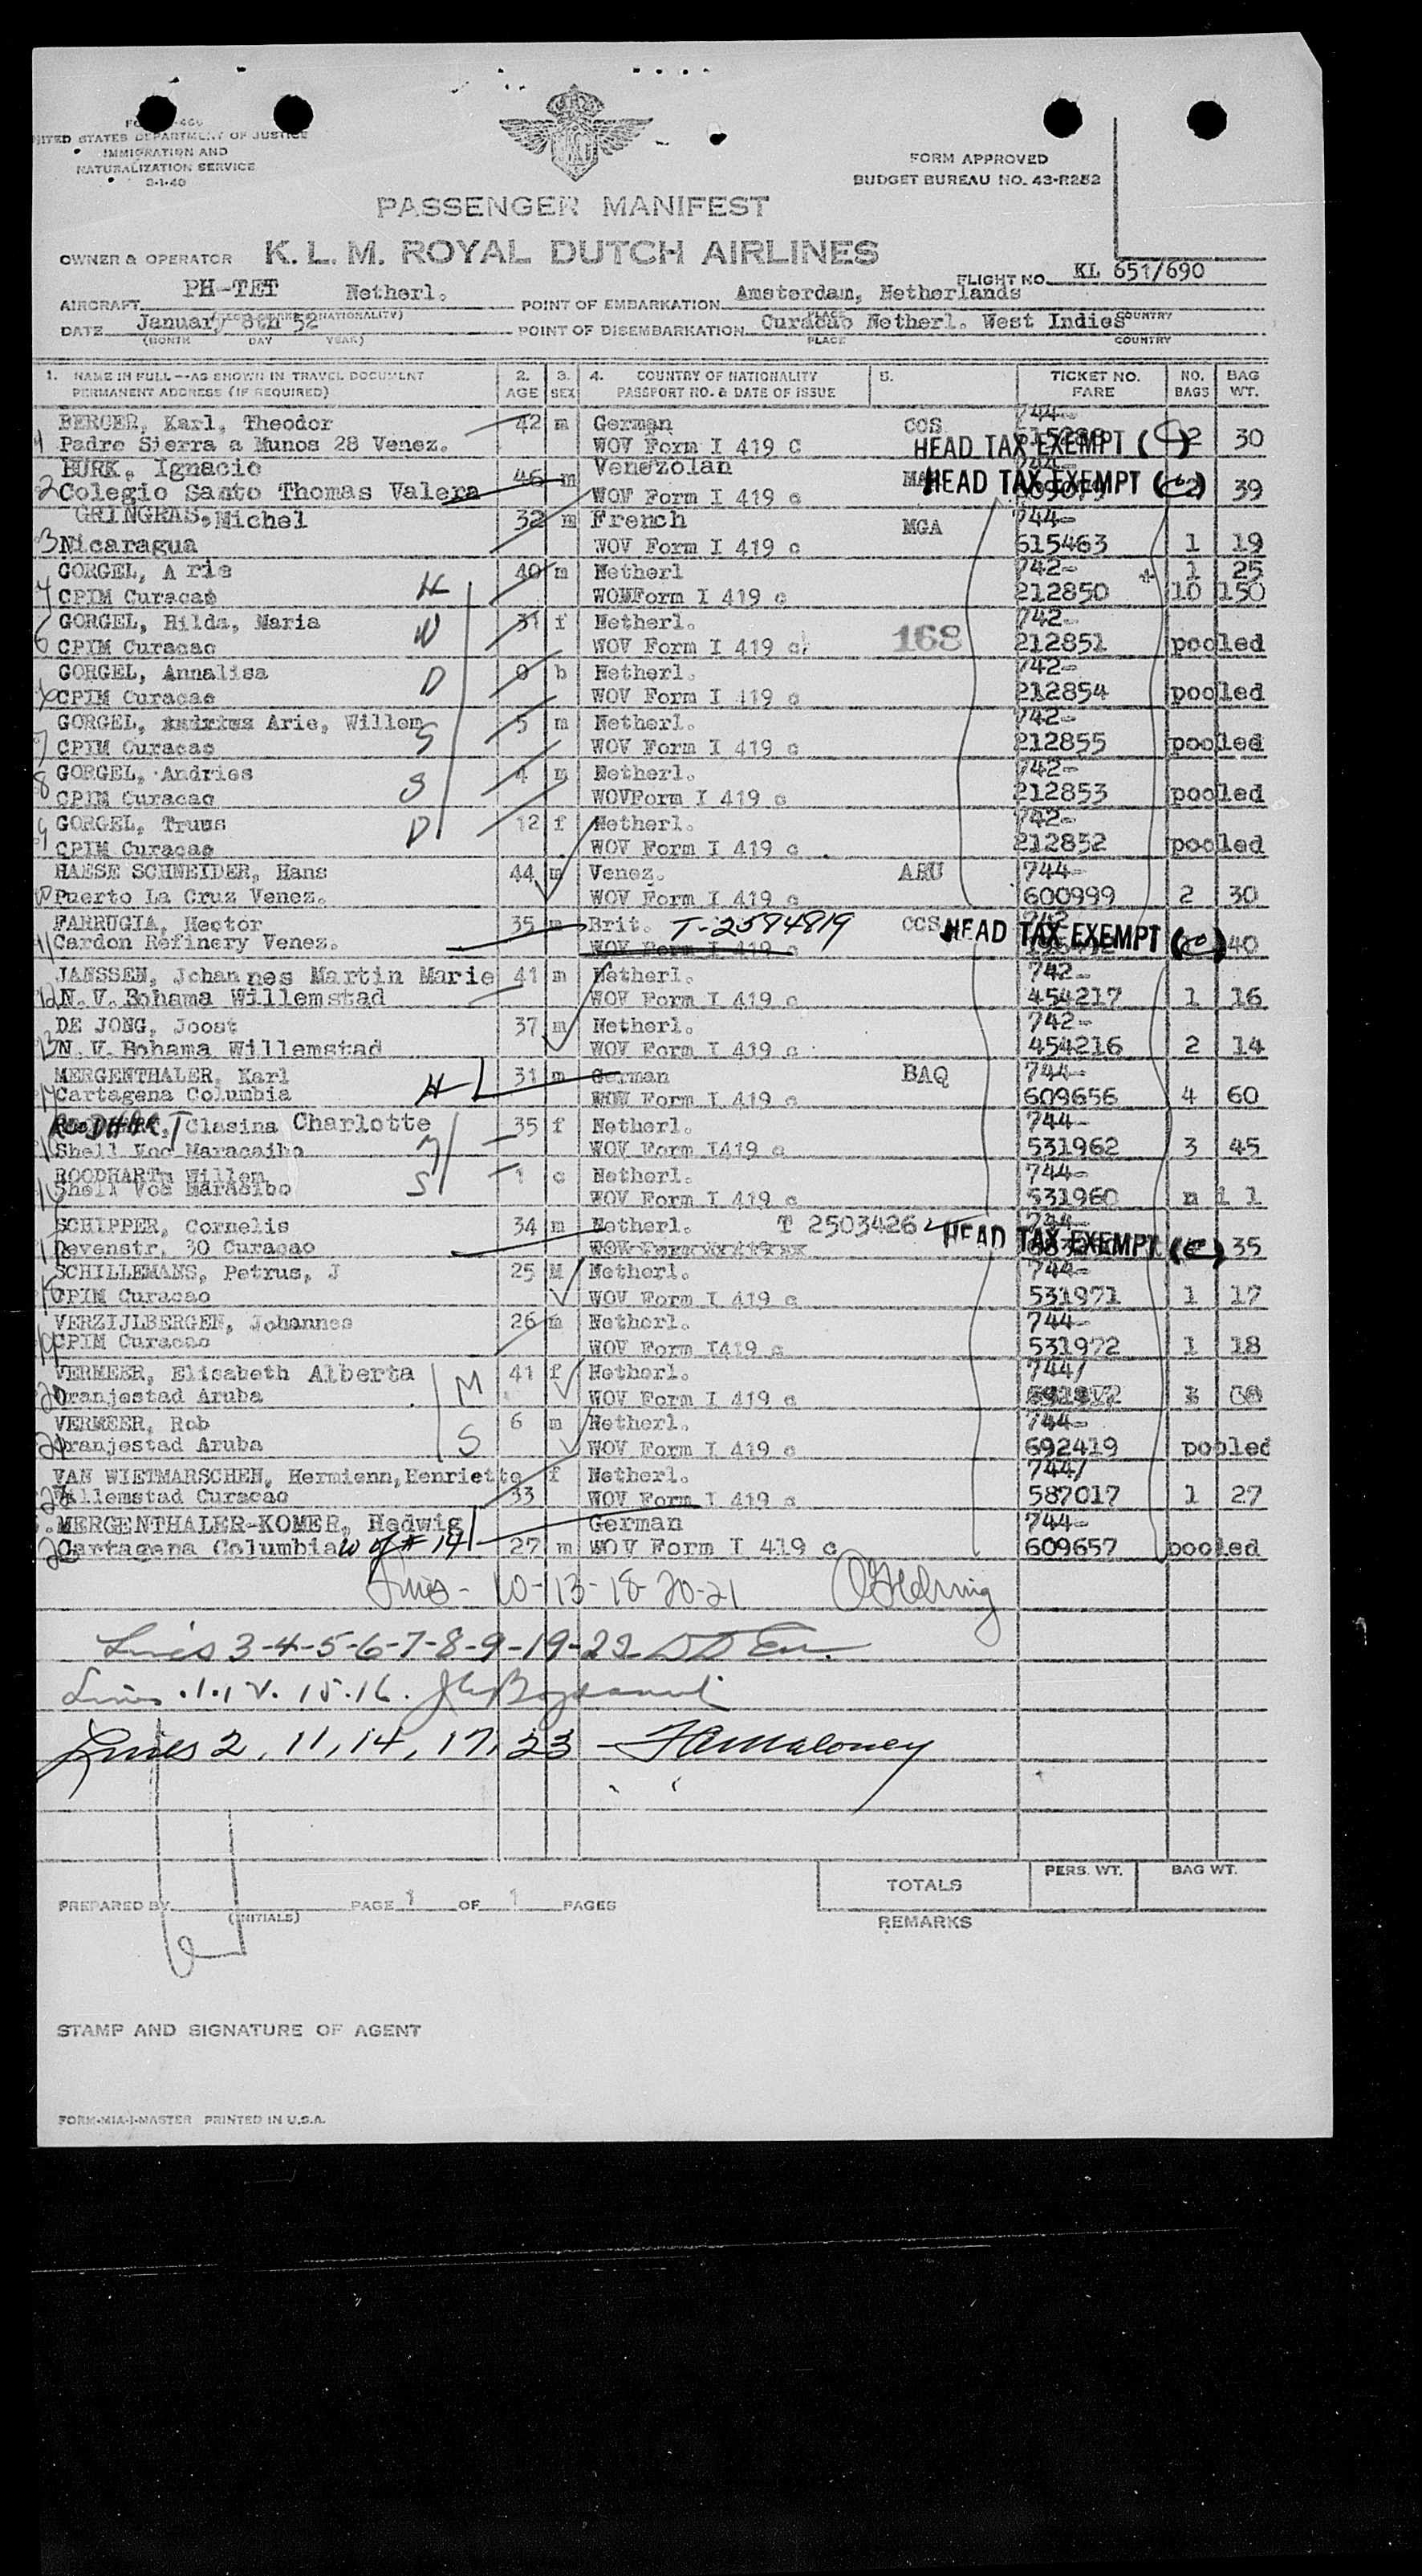 UNITED STATES DEPARTMENT OF JUSTICE
IMMIGRATION AND
NATURALIZATION SERVICE
FORM APPROVED
BUDGET BUREAU NO. 43-R252
PASSENGER MANIFEST
OWNER & OPERATOR K. L. M. ROYAL DUTCH AIRLINES
FLIGHT NO. KL 651/690
AIRCRAFT PH-TET Netherl. POINT OF EMBARKATION Amsterdam, Netherlands
DATE January 8th 52 POINT OF DISEMBARKATION Curacao Netherl. West Indies
(MONTH DAY YEAR) PLACE COUNTRY
1. NAME IN FULL—AS SHOWN IN TRAVEL DOCUMENT 2. 3. 4. COUNTRY OF NATIONALITY 5. TICKET NO. NO. BAG
PERMANENT ADDRESS (IF REQUIRED) AGE SEX PASSPORT NO. & DATE OF ISSUE FARE BAGS WT.
BERGER, Karl, Theodor 42 m German CCS 744-
1 Padre Sierra a Munos 28 Venez. WOV Form I 419 C HEAD TAX EXEMPT (C) 2 30
BURK, Ignacio 46 m Venezolan 744-
2 Colegio Santo Thomas Valera WOV Form I 419 c HEAD TAX EXEMPT (C) 2 39
GRINGRAS, Michel 32 m French MGA 744-
3 Nicaragua WOV Form I 419 c 615463 1 19
GORGEL, A rie 40 m Netherl 742- 1 25
4 CPIM Curacao H WOMForm I 419 c 212850 10 150
GORGEL, Hilda, Maria 31 f Netherl. 742-
CPIM Curacao W WOV Form I 419 c 168 212851 pooled
GORGEL, Annalisa 0 b Netherl. 742-
CPIM Curacao D WOV Form I 419 c 212854 pooled
GORGEL, Arie, Willem 5 m Netherl. 742-
7 CPIM Curacao S WOV Form I 419 c 212855 pooled
GORGEL, Andries 4 m Netherl. 742-
8 CPIM Curacao S WOVForm I 419 c 212853 pooled
GORGEL, Truus 12 f Netherl. 742-
9 CPIM Curacao D WOV Form I 419 c 212852 pooled
HAESE SCHNEIDER, Hans 44 m Venez. ARU 744-
10 Puerto La Cruz Venez. WOV Form I 419 c 600999 2 30
FARRUGIA, Hector 35 m Brit. T-2594819 CCS
11 Cardon Refinery Venez. WOV Form I 419 c HEAD TAX EXEMPT (C) 40
JANSSEN, Johannes Martin Marie 41 m Netherl. 742-
12 N.V. Bohama Willemstad WOV Form I 419 c 454217 1 16
DE JONG, Joost 37 m Netherl. 742-
13 N.V. Bohama Willemstad WOV Form I 419 c 454216 2 14
MERGENTHALER, Karl 31 m German BAQ 744-
14 Cartagena Columbia H WOV Form I 419 c 609656 4 60
ROODHART, Clasina Charlotte 35 f Netherl. 744-
Shell Voc Maracaibo M WOV Form I419 c 531962 3 45
ROODHART, Willem 1 c Netherl. 744-
Shell Voc Maracibo S WOV Form I 419 c 531960 n i l
SCHIPPER, Cornelis 34 m Netherl. T 2503426 744-
Devenstr. 30 Curacao HEAD TAX EXEMPT (C) 35
SCHILLEMANS, Petrus, J 25 M Netherl. 744-
CPIM Curacao WOV Form I 419 c 531971 1 17
VERZIJLBERGEN, Johannes 26 m Netherl. 744-
19 CPIM Curacao WOV Form I419 c 531972 1 18
VERMEER, Elisabeth Alberta 41 f Netherl. 744/
20 Oranjestad Aruba M WOV Form I 419 c
VERMEER, Rob 6 m Netherl. 744-
21 Oranjestad Aruba S WOV Form I 419 c 692419 pooled
VAN WIETMARSCHEN, Hermienn, Henriette f Netherl. 744/
Willemstad Curacao 33 WOV Form I 419 c 587017 1 27
MERGENTHALER-KOMER, Hedwig German 744-
Cartagena Columbia W of #14 27 m WOV Form I 419 c 609657 pooled
Lines - 10-13-18-20-21
Lines 3-4-5-6-7-8-9-19-22
Lines 1.12.15.16.
Lines 2, 11, 14, 17, 23 - Maloney
TOTALS PERS. WT. BAG WT.
PREPARED BY (INITIALS) PAGE 1 OF 1 PAGES
REMARKS
STAMP AND SIGNATURE OF AGENT
FORM-MIA-I-MASTER PRINTED IN U.S.A.